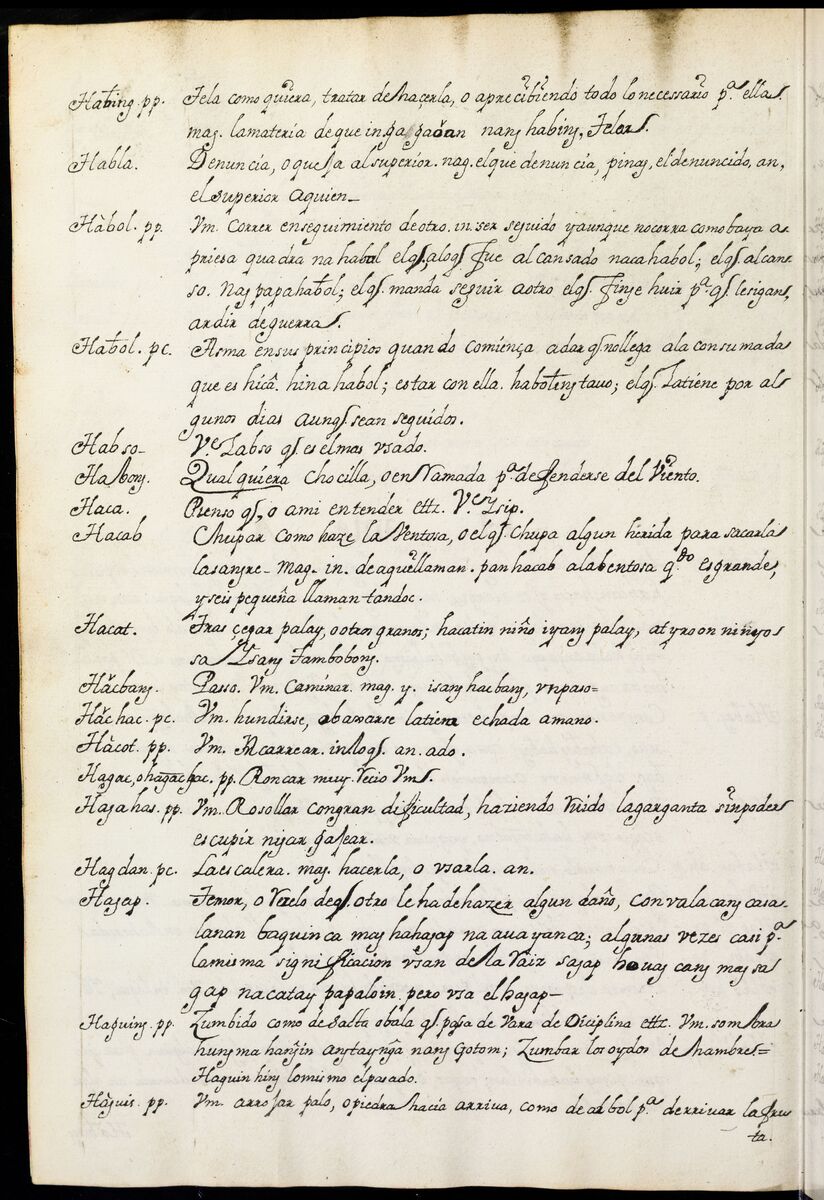 Habing. pp. Tela como quiera, tratar de haçerla, o aprecibiendo todo lo necessario pª. ella.
mag. la materia de que in.
Habla. Denuncia, o queja al superior. nag. el que denuncia, pinag, el denuncido, an,
el superior aquien_
Hàbol. pp. Vm. Correr en seguimiento de otro. in. ser seguido y aunque no corra como baya a
priesa quadra na habul el qſ, alo qſ fue alcansado naca habol; el qſ alcan=
so. Nag papahabol; el qſ. manda seguir a otro el qſ. finje huir pª. qſ. le sigan,
ardir de guerra.
Habol. pc. Asma en sus principios quando comiença adar qſ. no llega ala consumada
que es hicâ. hina habol; estar con ella. el qſ. la tiene por al
gunos dias aunqſ sean seguidos.
Habso_ Vᵉ. Labso qſ. es el mas vsado.
Qualquiera chocilla, o enRamada pª. defenderse del Viento.
Haca. Pienso qſ, o ami entender ettz. Vᵉ. Ysip.
Hacab Chupar como haze la Ventosa, o el qſ. Chupa algun herida para sacarla
la sangre_ mag. in. de aqui llaman. pan hacab ala bentosa q.ᵈᵒ es grande,
y seis pequeña llaman tandoc.
Hacat. Tras çegar palay, o otros granos; hacatin niño iyang palay, at yroon ninyo
sa Ysang Tambobong.
Hăcbang. Passo. Vm. Caminar. mag. y. isang hacbang, vn paso=
Hăchac. pc. Vm. hundirse, abaxarse la tierra echada amano.
Hàcot. pp. Vm. Acarrear. in. lo qſ. an. ado.
Hagac, o hagac hac. pp. Roncar muy recio Vm.
Hagahas. pp. Vm. Resollar con gran dificultad, haziendo ruido la garganta sin poder
escupir ni gargagear.
Hagdan. pc. La escalera. mag. hacerla, o vsarla. an.
Hagap. Temor, o rezelo de qſ. otro le ha de hazer algun daño, con vala cang casa=
lanan baquin ca mag hahagap na auayan ca; algunas vezes casi pª.
la misma significacion vsan de la raiz sagap houag cang mag sa
gap na catay papaloin. pero vsa el hagap_
Haguing. pp. Zumbido como de salta o bala qſ. pasa de Vara de Diciplina ettz. Vm. sombra
hung ma hangin ang taynga nang gotom; Zumbar los oydos de hambre=
Haguin hing lo mismo el pasado.
Hàguis. pp. Vm. arrojar palo, o piedra hacia arriva, como de arbol pª. derrivar la fru
ta.